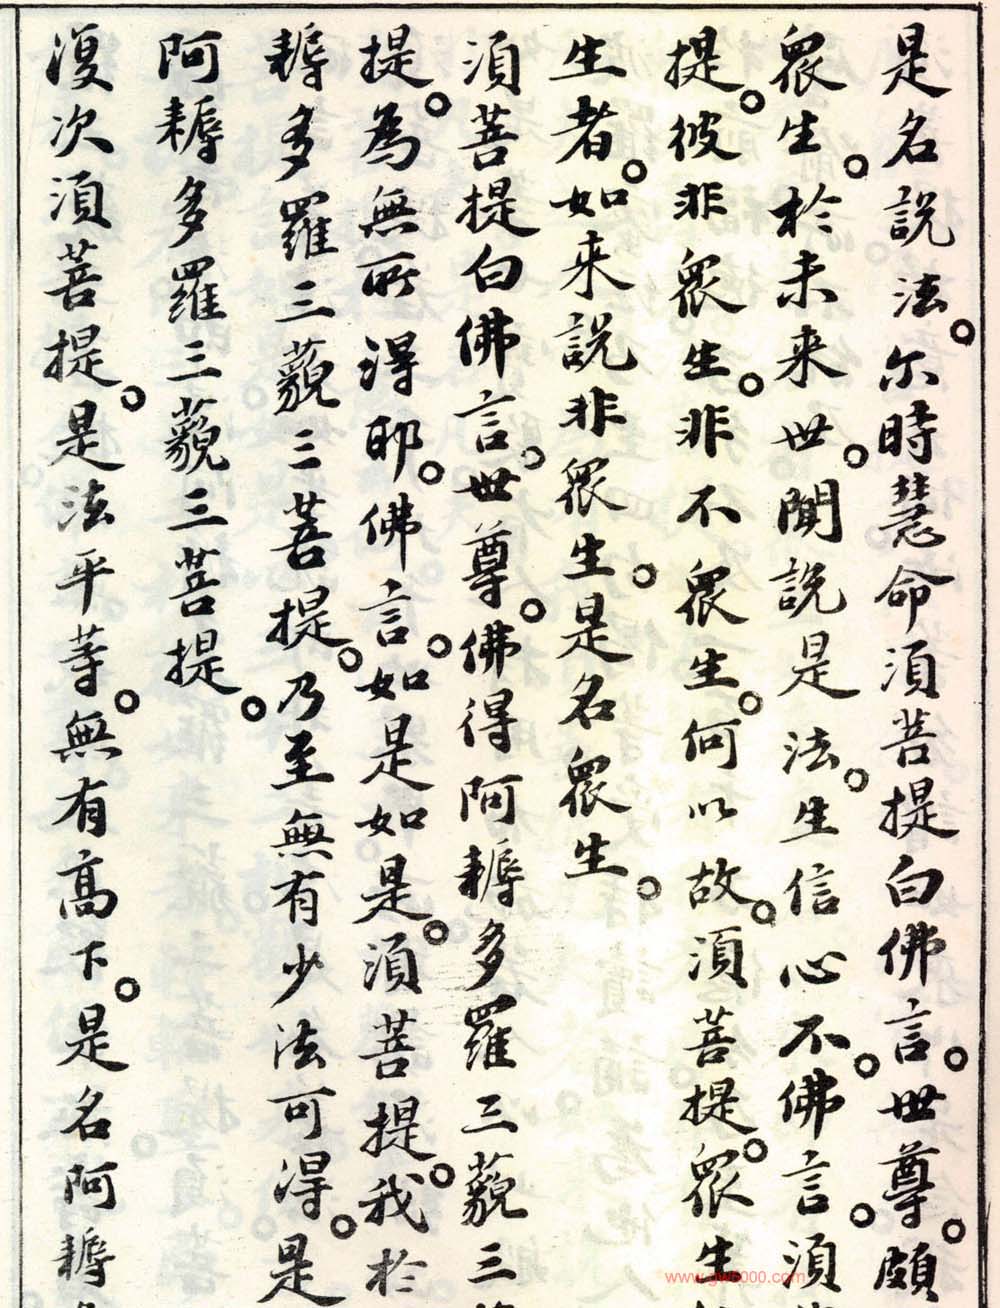 是名說法。尔時慧命須菩提白佛言。世尊。頗
眾生。於未来世。聞說是法。生信心不。佛言。須
提。彼非眾生。非不眾生。何以故。須菩提。眾生
生者。如来說非眾生。是名眾生。
須菩提白佛言。世尊。佛得阿耨多羅三藐三
提。為無所得耶。佛言。如是如是。須菩提。我於
耨多羅三藐三菩提。乃至無有少法可得。是
阿耨多羅三藐三菩提。
復次須菩提。是法平等。無有高下。是名阿耨
www.gw8000.com